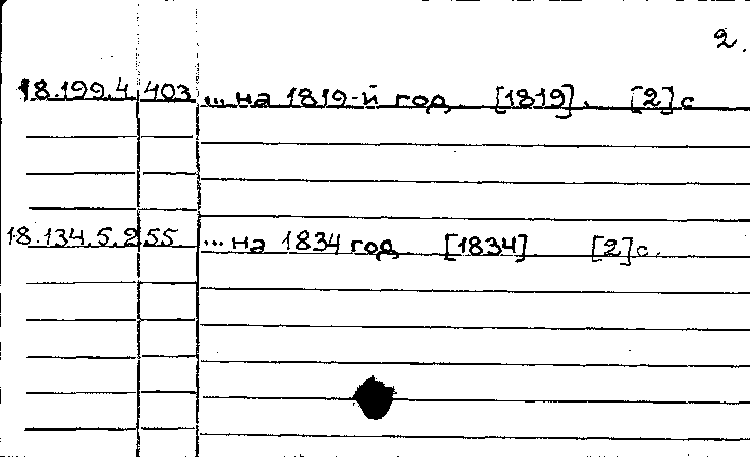 2.
18.199.4.403 ... на 1819-й год [1819]. [2] с
18.134.5.255 ... на 1834 год [1834] [2] с.